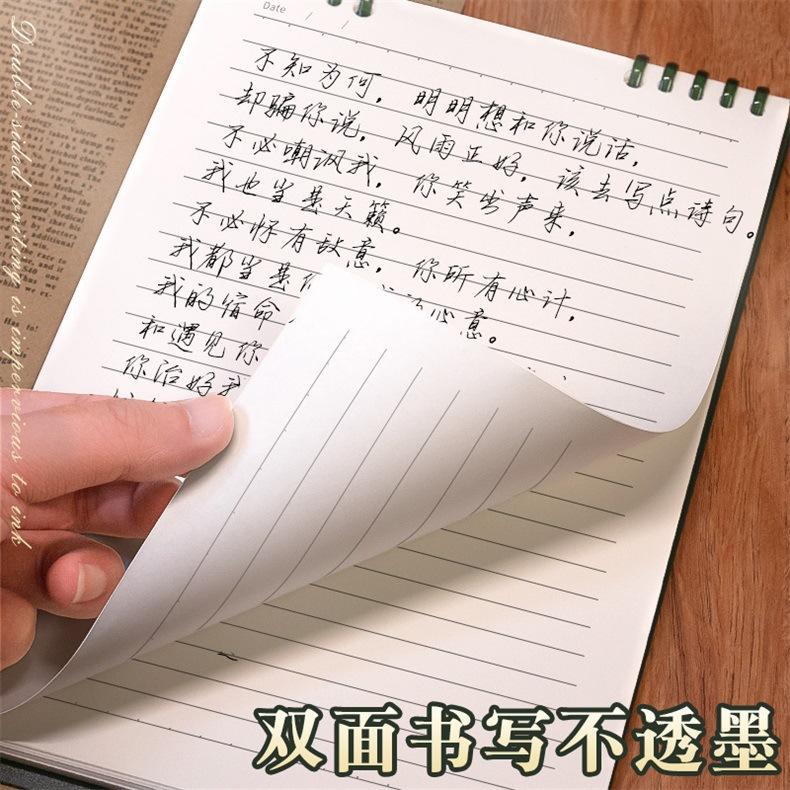 Date / /
不知为何，明明想和你说话，
却骗你说，风雨正好，该去写点诗句。
不必嘲讽我，你笑出声来，
我也当是天籁。
不必怀有敌意，你所有心计，
我都当是你 心意。
我的宿命
和遇见你
你治好我
Double-sided writing is impervious to ink
双面书写不透墨